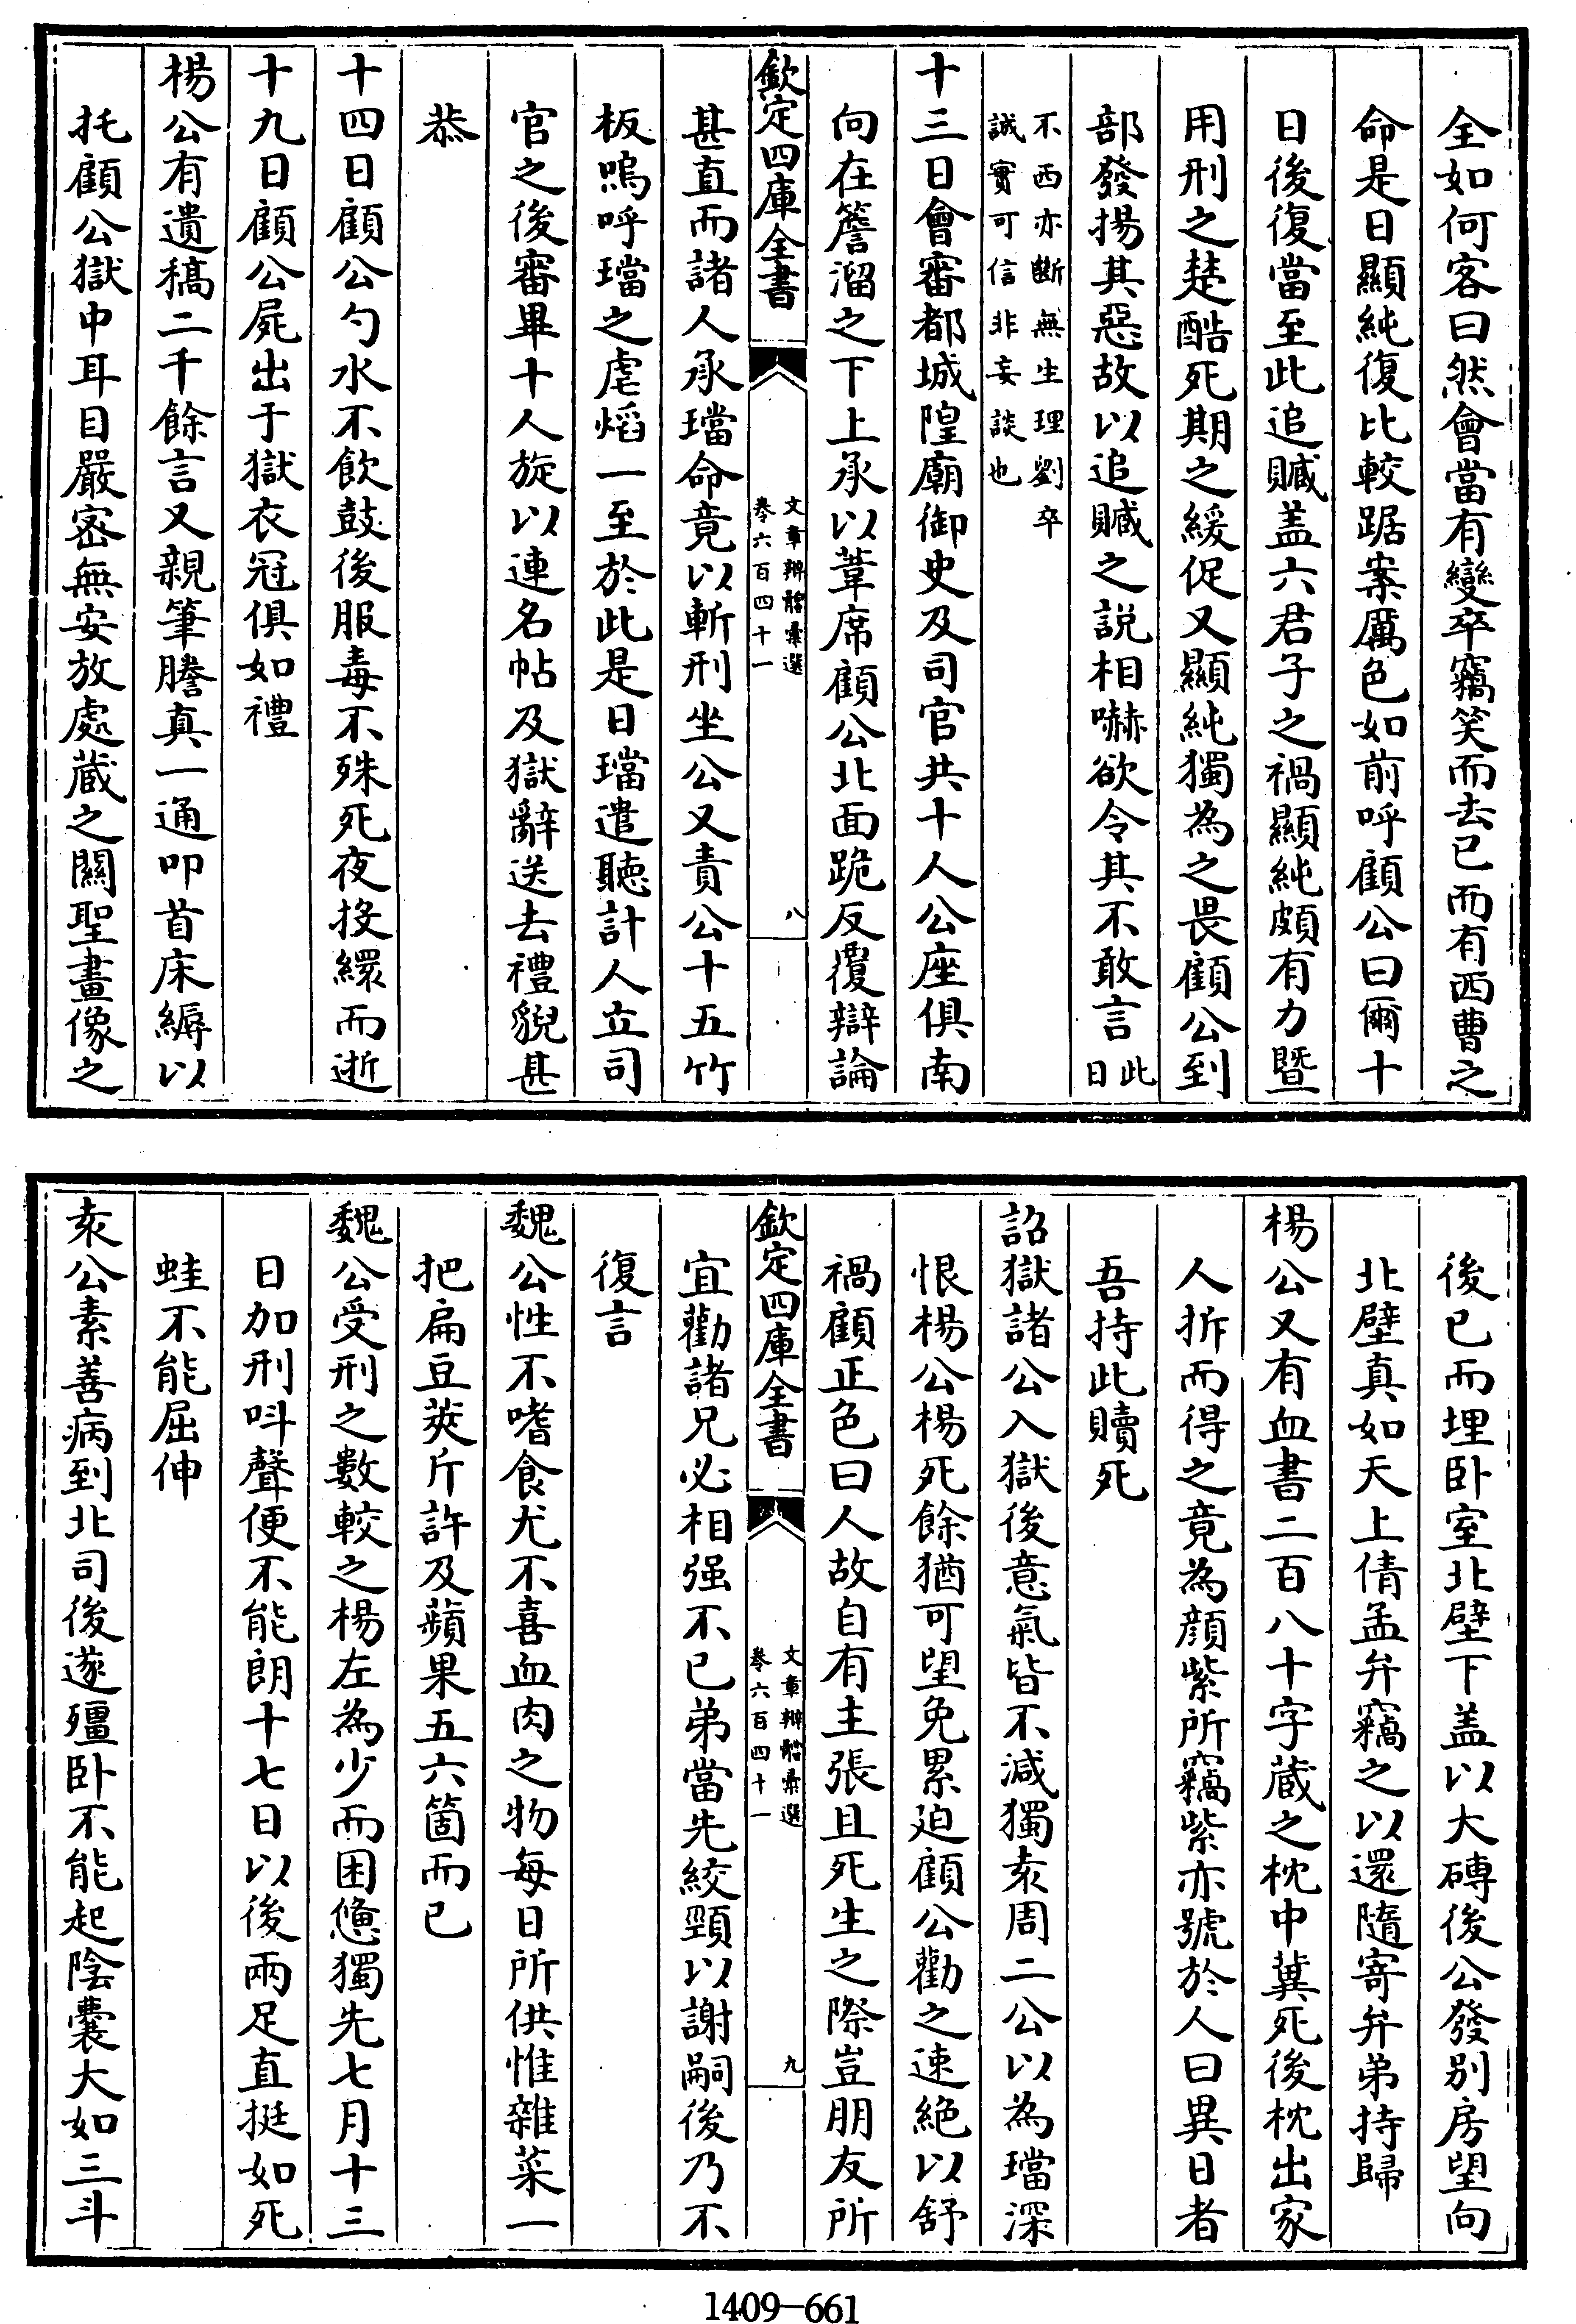 全如何客曰然會當有變卒竊笑而去已而有西曹之
命是日顯純復比較踞案厲色如前呼顧公曰爾十
日後復當至此追贓盖六君子之禍顯純頗有力暨
用刑之楚酷死期之緩促又顯純獨為之畏顧公到
部發揚其惡故以追贓之説相嚇欲令其不敢言此日
不西亦斷無生理劉卒
誠實可信非妄談也
十三日會審都城隍廟御史及司官共十人公座俱南
向在簷溜之下上承以葦席顧公北面跪反覆辯論
欽定四庫全書
文章辨體彙選
卷六百四十一
八
甚直而諸人承璫命竟以斬刑坐公又責公十五竹
板嗚呼璫之虐熖一至於此是日璫遣聽計人立司
官之後審畢十人旋以連名帖及獄辭送去禮貌甚
恭
十四日顧公勺水不飲鼓後服毒不殊死夜投繯而逝
十九日顧公屍出于獄衣冠俱如禮
楊公有遺稿二千餘言又親筆謄真一通叩首床縟以
托顧公獄中耳目嚴宻無安放處蔵之關聖畫像之
後已而埋卧室北壁下盖以大磚後公發别房望向
北壁真如天上倩孟弁竊之以還隨寄弁弟持歸
楊公又有血書二百八十字蔵之枕中冀死後枕出家
人拆而得之竟為顔紫所竊紫亦號於人曰異日者
吾持此贖死
詔獄諸公入獄後意氣皆不減獨袁周二公以為璫深
恨楊公楊死餘猶可望免累廹顧公勸之速絶以舒
禍顧正色曰人故自有主張且死生之際豈朋友所
欽定四庫全書
文章辨體彙選
卷六百四十一
九
宜勸諸兄必相强不已弟當先絞頸以謝嗣後乃不
復言
魏公性不嗜食尤不喜血肉之物每日所供惟雜菜一
把扁豆莢斤許及蘋果五六箇而已
魏公受刑之數較之楊左為少而困憊獨先七月十三
日加刑呌聲便不能朗十七日以後兩足直挺如死
蛙不能屈伸
袁公素善病到北司後遂殭卧不能起陰囊大如三斗
1409-661